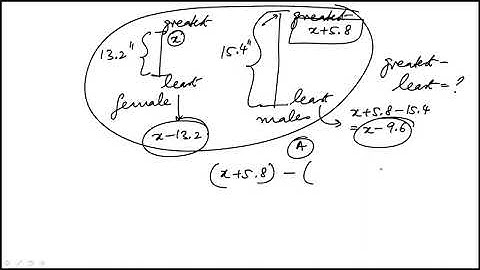 greatest
x
13.2"
least
female
x-13.2
greatest
x+5.8
15.4"
least
males
x+5.8-15.4
= x-9.6
greatest -
least = ?
A
(x+5.8) - (